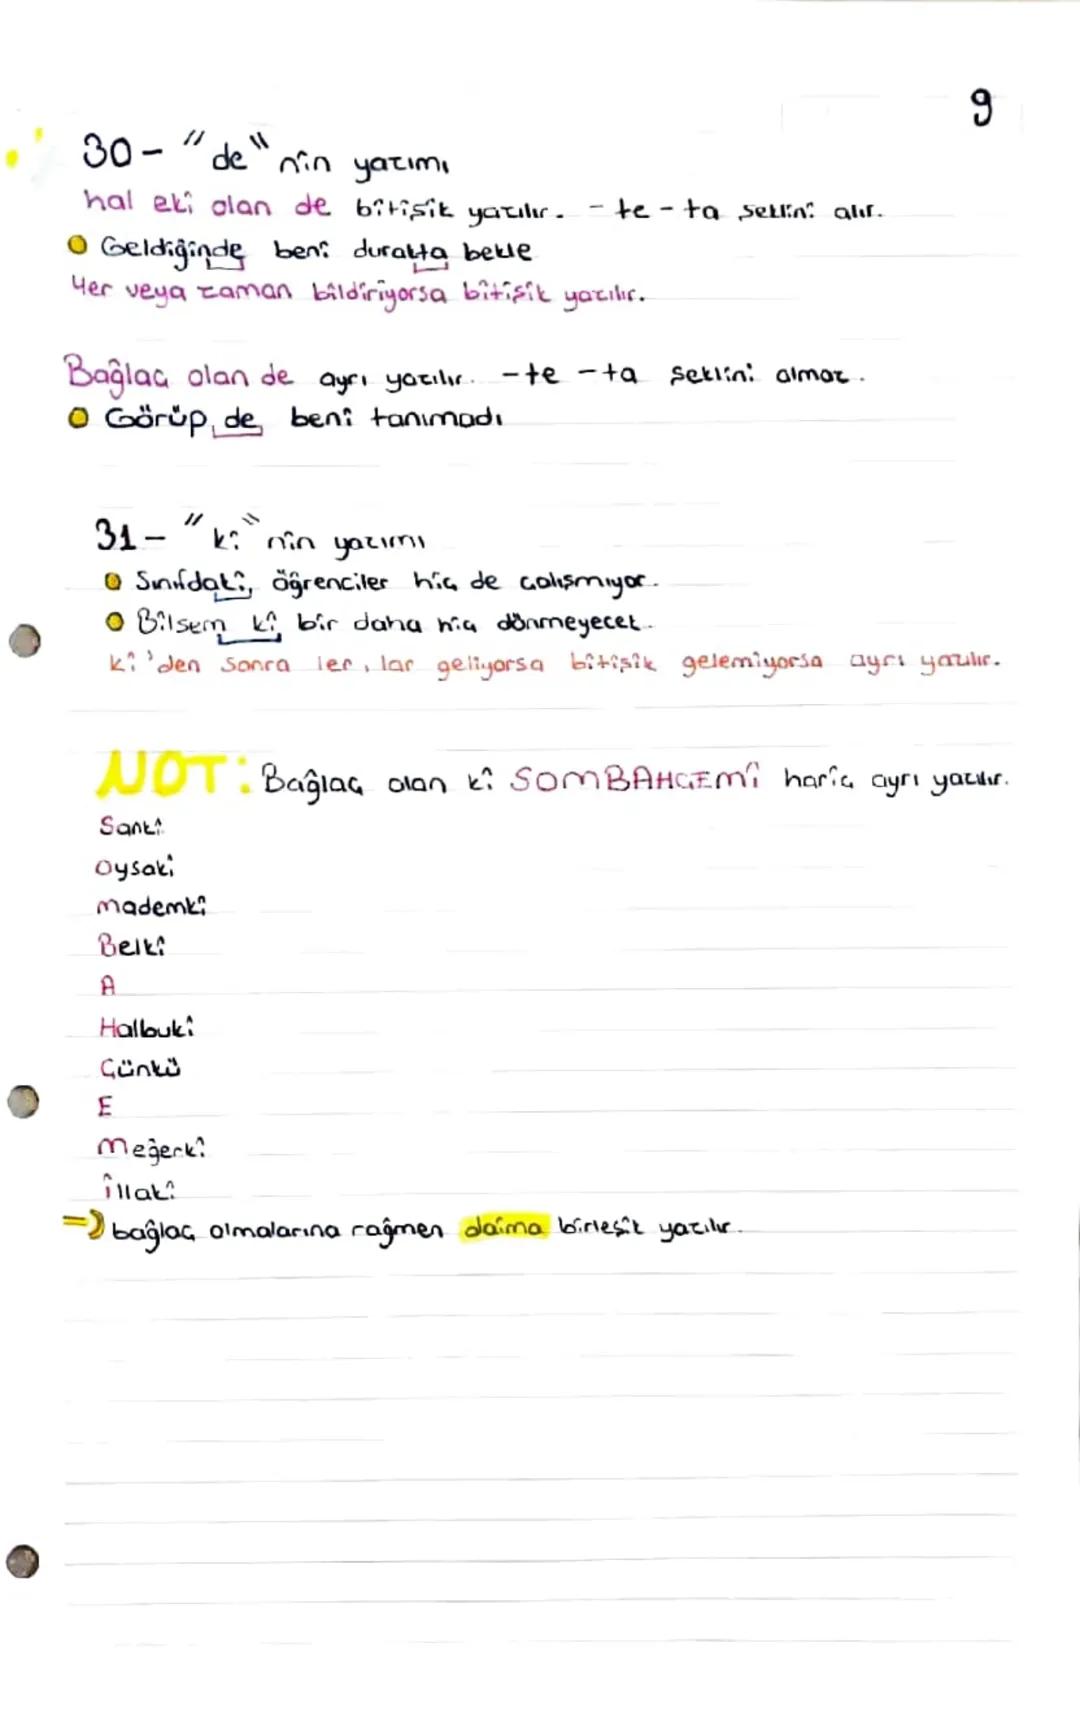 9
30- "de" nin yazımı
hal eki olan de bitişik yazılır. -te -ta şeklini alır.
Geldiğinde beni durakta bekle
Yer veya zaman bildiriyorsa bitişik yazılır.
Bağlaç olan de ayrı yazılır. -te -ta şeklini almaz.
Görüp de beni tanımadı
31- "ki" nin yazımı
Sınıfdaki, öğrenciler hiç de çalışmıyor.
Bilsem ki bir daha hiç dönmeyecek.
ki'den sonra ler, lar geliyorsa bitişik gelemiyorsa ayrı yazılır.
NOT: Bağlaç olan ki SOMBAHÇEMİ hariç ayrı yazılır.
Sanki
Oysaki
mademki
Belki
A
Halbuki
Çünkü
E
Meğerki
illaki
=) bağlaç olmalarına rağmen daima birleşik yazılır.